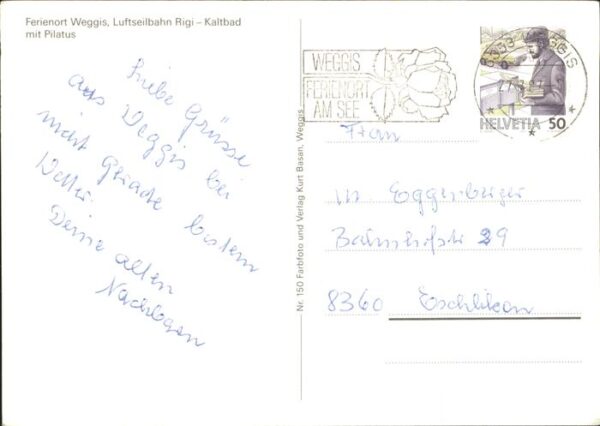 Ferienort Weggis, Luftseilbahn Rigi – Kaltbad
mit Pilatus
Liebe Grüsse
aus Weggis bei
nicht gerade bestem
Wetter
Deine alten
Nachbarn
Nr. 150 Farbfoto und Verlag Kurt Basan, Weggis
WEGGIS
FERIENORT
AM SEE
6353 WEGGIS
HELVETIA 50
Frau
M. Eggenberger
Bahnhofstr 29
8360 Eschlikon